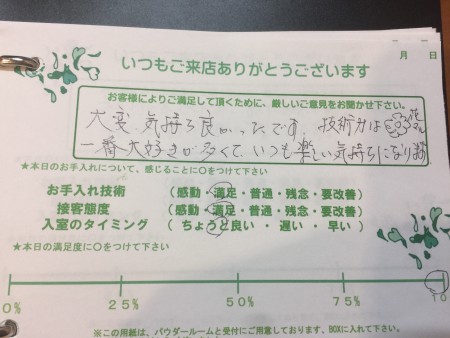 月 日
いつもご来店ありがとうございます
お客様によりご満足して頂くために、厳しいご意見をお聞かせ下さい。
大変気持ち良かったです。技術力は
一番大好きが多くて、いつも楽しい気持ちになります
★本日のお手入れについて、感じることに○をつけて下さい
お手入れ技術 (感動・満足・普通・残念・要改善)
接客態度 (感動・満足・普通・残念・要改善)
入室のタイミング (ちょうど良い ・ 遅い ・ 早い)
★本日の満足度に○をつけて下さい
0% 25% 50% 75% 10
※この用紙は、パウダールームと受付にご用意しております、BOXに入れて下さい。